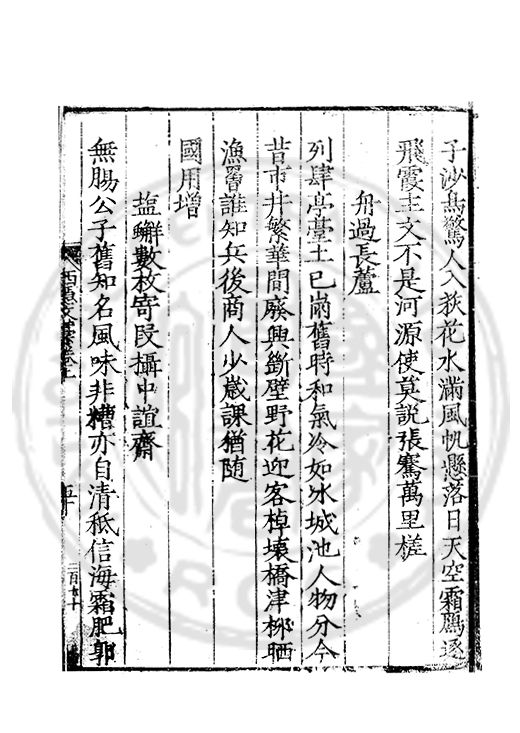 子沙鳥驚人入荻花水滿風帆懸落日天空霜鴈逐
飛霞主文不是河源使莫說張騫萬里槎
舟過長蘆
列肆亭臺土已崩舊時和氣冷如冰城池人物分今
昔市井繁華間廢興斷壁野花迎客棹壞橋津柳晒
漁罾誰知兵後商人少歲課猶随
國用增
塩蠏數枚寄段攝中誼齋
無腸公子舊知名風味非糟亦自清秪信海霜肥郭